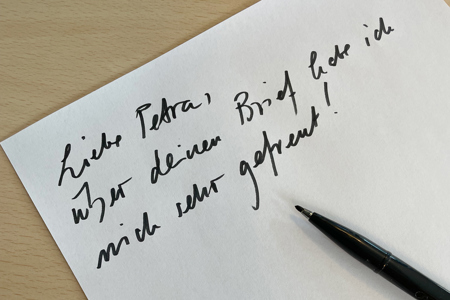 Liebe Petra,
über deinen Brief habe ich
mich sehr gefreut!